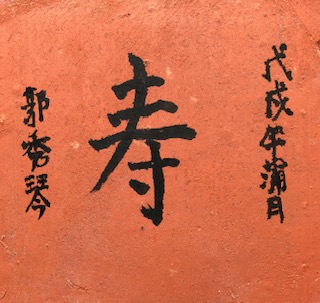 戊戌年蒲月
寿
郭秀琴